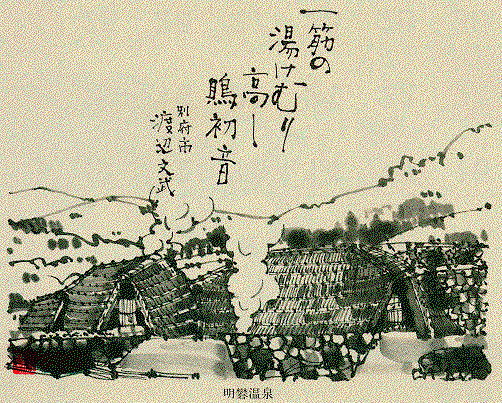 一筋の
湯けむり
高し
鵙初音
別府市
渡辺文武
明礬温泉